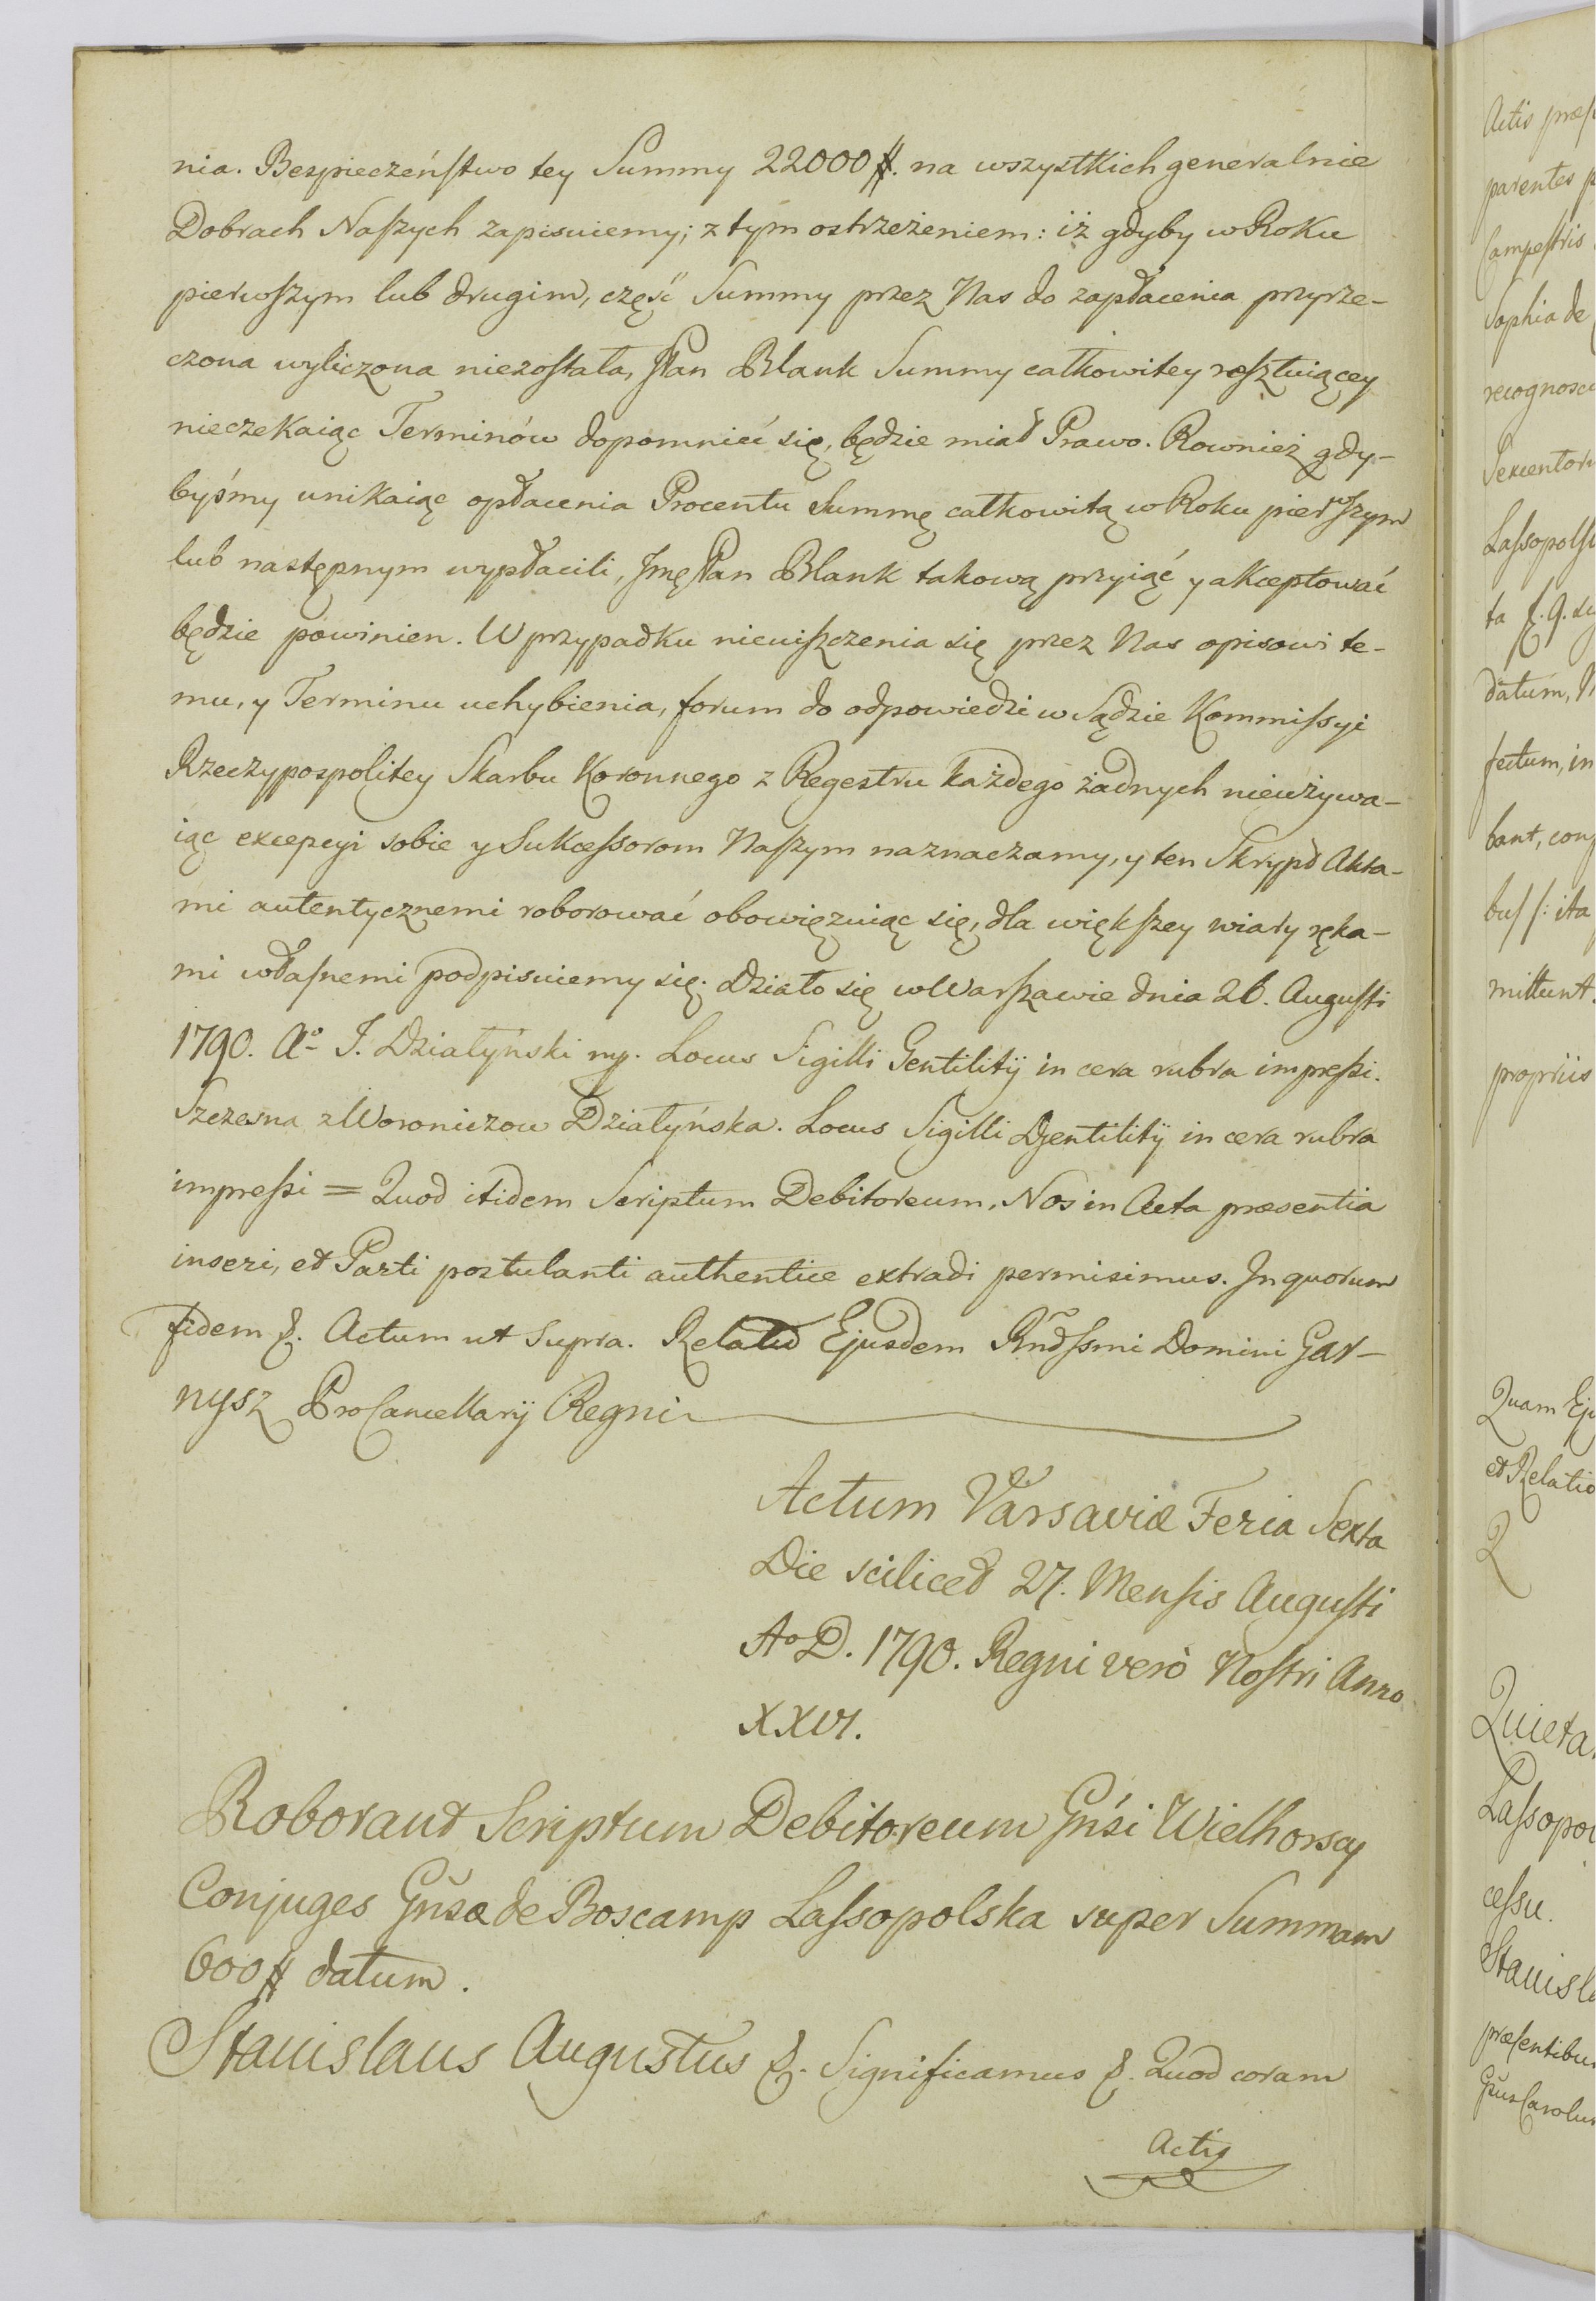 nia. Bezpieczeństwo tey Summy 22000 #. na wszystkich generalnie
Dobrach Naszych zapisuiemy; z tym ostrzeżeniem: iż gdyby w Roku
pierwszym lub drugim, część Summy przez Nas do zapłacenia przyrze-
czona wyliczona niezostała, Pan Blank Summy całkowitey resztuiącey
nieczekaiąc Terminów dopomnieć się, będzie miał Prawo. Rownież gdy-
byśmy unikaiąc opłacenia Procentu Summę całkowitą w Roku pierwszym
lub następnym wypłacili, Jmę Pan Blank takową przyiąć y akceptować
będzie powinien. W przypadku nieuiszczenia się przez Nas opisowi te-
mu, y Terminu uchybienia, forum do odpowiedzi w Sądzie Kommissyi
Rzeczypospolitey Skarbu Koronnego z Regestru każdego żadnych nieużywa-
iąc excepcyi sobie y Sukcessorom Naszym naznaczamy, y ten Skrypt Akta-
mi autentycznemi roborować obowięzuiąc się, dla większey wiary ręka-
mi własnemi podpisuiemy się. Działo się w Warszawie dnia 26. Augusti
1790. Aº I. Działyński mp. Locus Sigilli Gentilitÿ in cera rubra impressi.
Szczesna z Woroniczow Działyńska. Locus Sigilli Gentilitÿ in cera rubra
impressi = Quod itidem Scriptum Debitoreum, Nos in Acta præsentia
inseri, et Parti postulanti authentice extradi permisimus. In quorum
fidem &. Actum ut Supra. Relatio Ejusdem Rndssmi Domini Gar-
nysz ProCancellarÿ Regni
Actum Varsaviæ Feria Sexta
Die scilicet 27. Mensis Augusti
Aº D. 1790. Regni verò Nostri Anno
XXVI.
Roborant Scriptum Debitoreum Gñsi Wielhorscy
Conjuges Gñsæ de Boscamp Lassopolska super Summam
600 # datum.
Stanislaus Augustus &. Significamus &. Quod coram
Actis
Actis
parentes
Campestris
Sophia de
Lassopols
datum,
fectum, in
bant,
ita
mittunt.
propriis
Quam
et Relatio
Lassopol
cessu.
Stanisla
præsentibus
Gñus Carolus